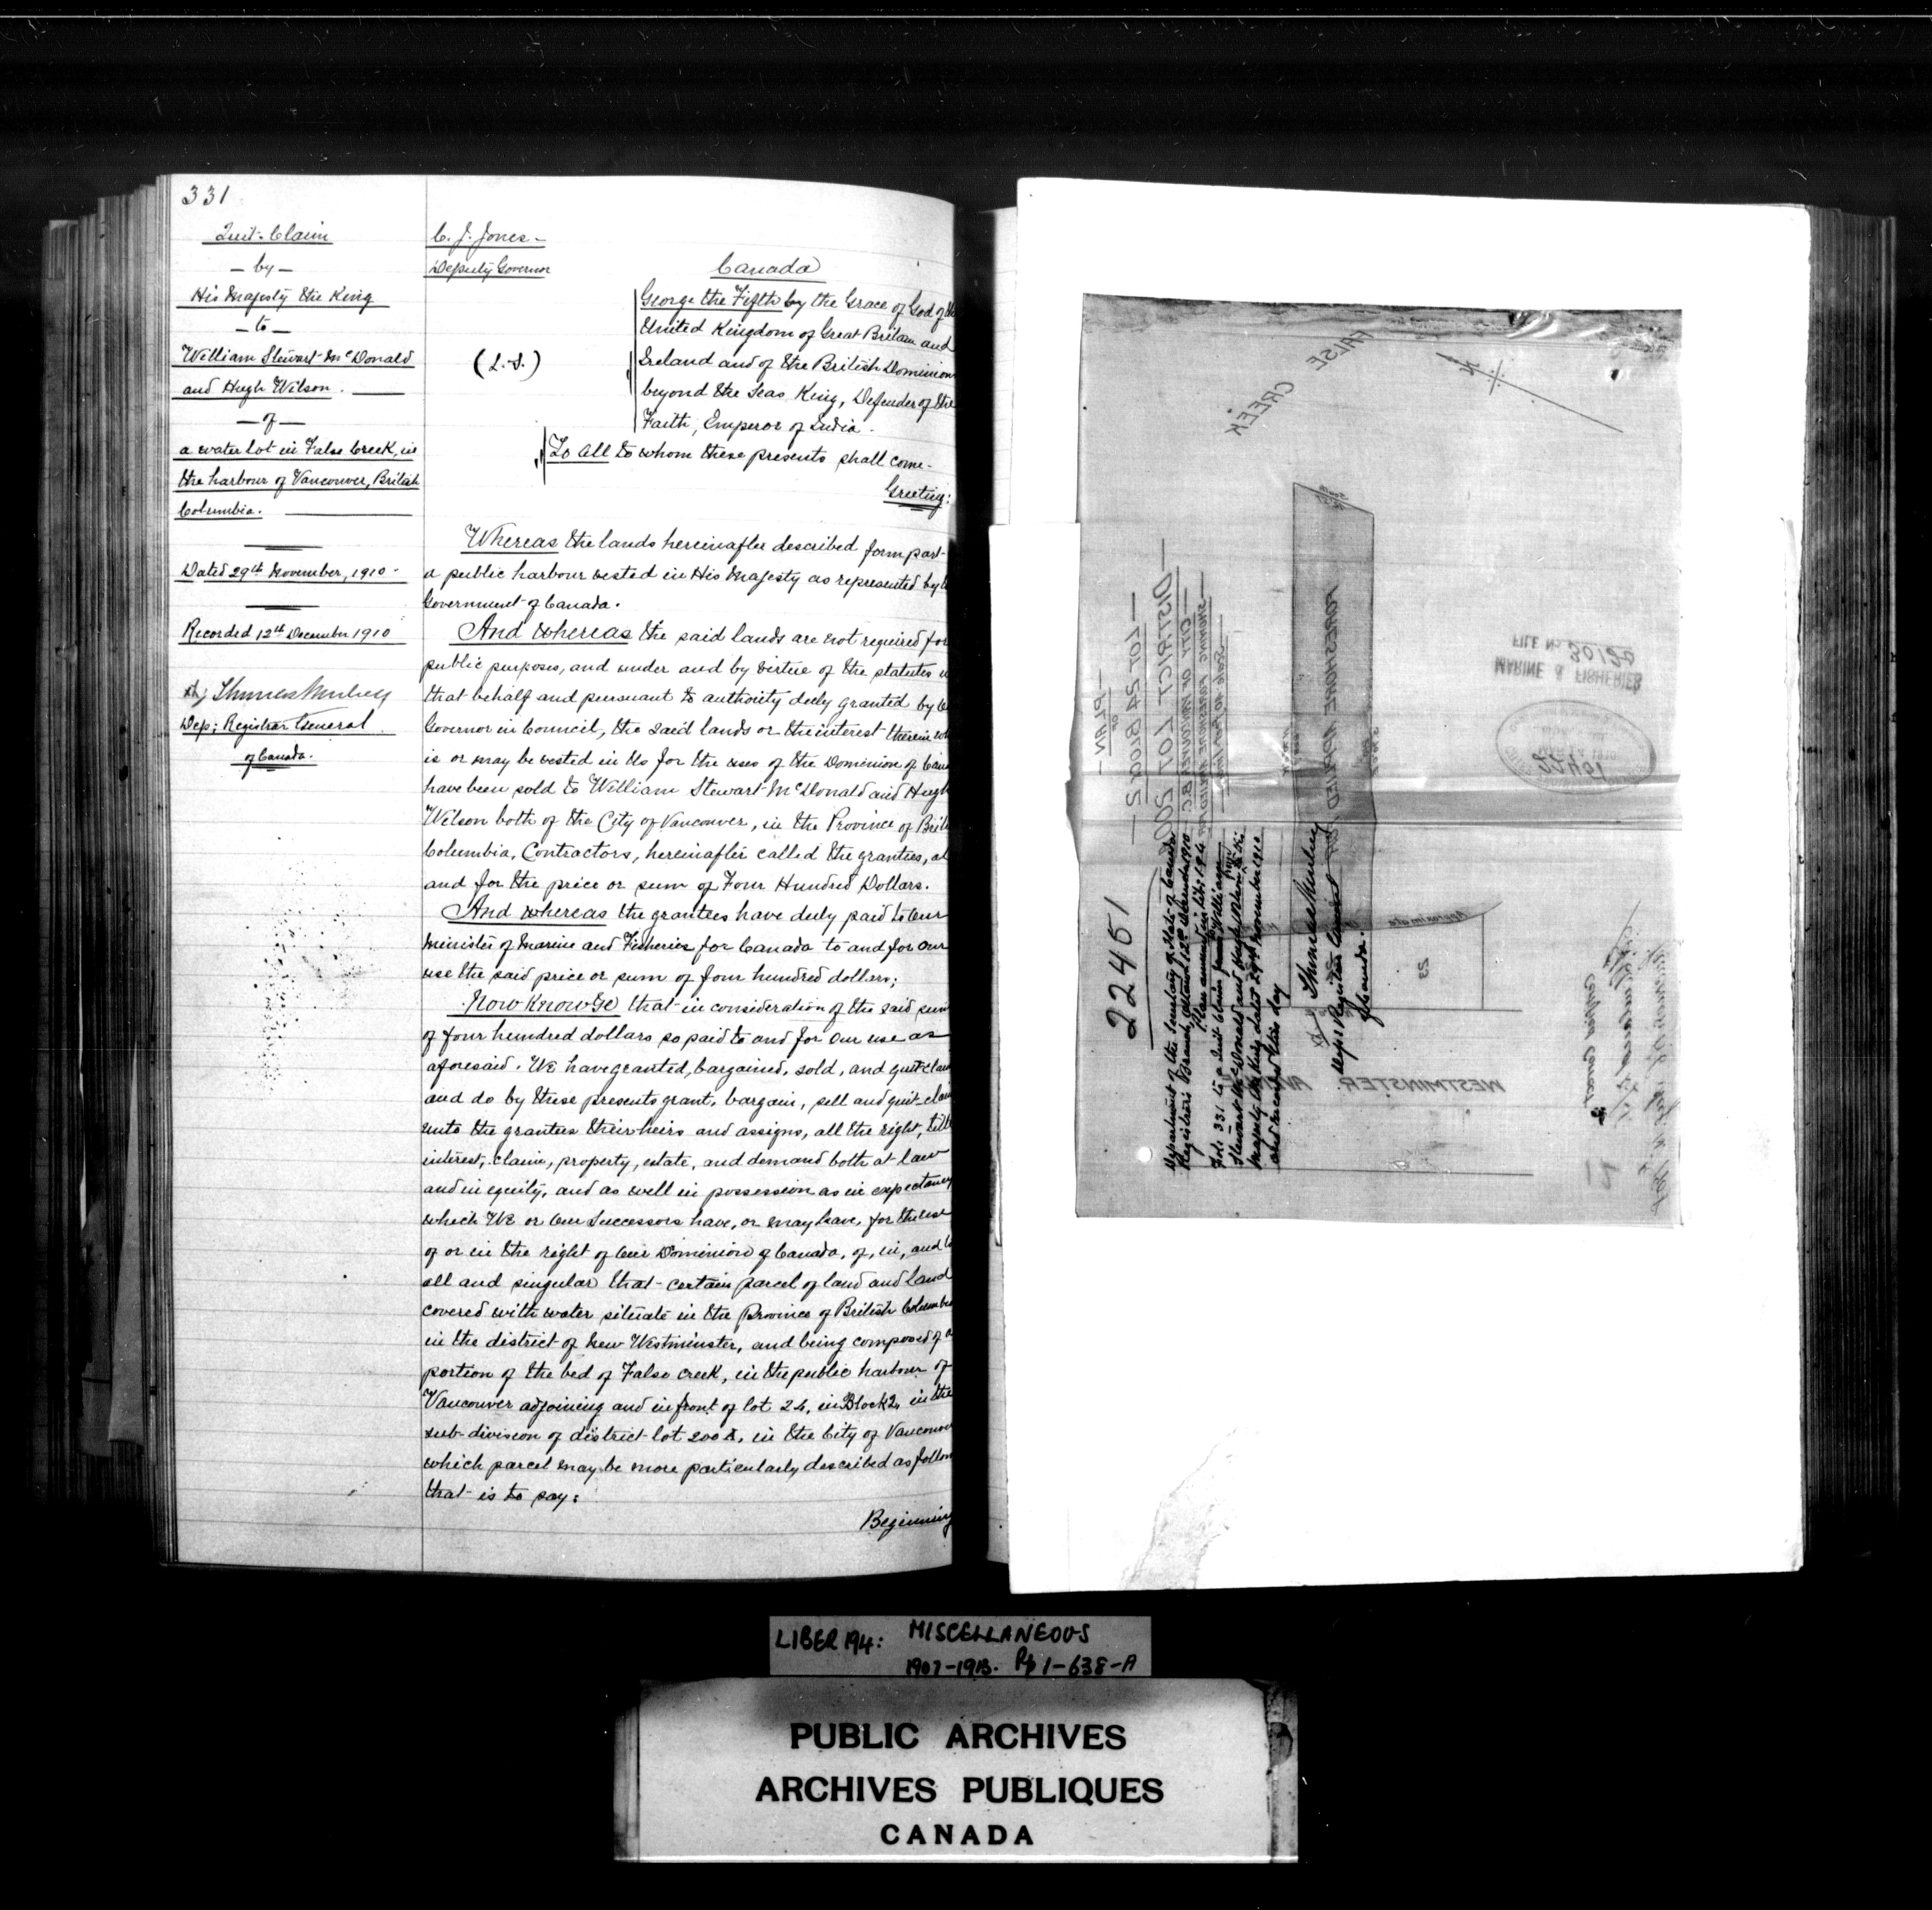 331
Quit-Claim
- by -
His Majesty the King
- to -
William Stewart McDonald
and Hugh Wilson.
- of -
a water lot in False Creek, in
the harbour of Vancouver, British
Columbia.
Dated 29th November, 1910.
Recorded 12th December 1910
Dep: Registrar General
of Canada.
C. J. Jones-
Deputy Governor
Canada
(L.S.)
George the Fifth by the Grace of God of the
United Kingdom of Great Britain and
Ireland and of the British Dominions
beyond the Seas King, Defender of the
Faith, Emperor of India.
To All to whom these presents shall come-
Greeting:
Whereas the lands hereinafter described form part
a public harbour vested in His Majesty as represented by
Government of Canada.
And whereas the said lands are not required for
public purposes, and under and by virtue of the statutes
that behalf and pursuant to authority duly granted by
Governor in Council, the said lands or the interest therein
is or may be vested in Us for the uses of the Dominion of
have been sold to William Stewart McDonald and Hugh
Wilson both of the City of Vancouver, in the Province of
Columbia, Contractors, hereinafter called the grantees, at
and for the price or sum of Four Hundred Dollars.
And whereas the grantees have duly paid to Our
Minister of Marine and Fisheries for Canada to and for Our
use the said price or sum of four hundred dollars;
Now Know Ye that in consideration of the said sum
of four hundred dollars so paid to and for Our use as
aforesaid. We have granted, bargained, sold, and quit-
and do by these presents grant, bargain, sell and quit-
unto the grantees their heirs and assigns, all the right, title
interest, claim, property, estate, and demand both at law
and in equity, and as well in possession as in expectancy
which We or Our Successors have, or may have, for the use
of or in the right of Our Dominion of Canada, of, in, and to
all and singular that certain parcel of land and land
covered with water situate in the Province of British Columbia
in the district of New Westminster, and being composed of a
portion of the bed of False Creek, in the public harbour of
Vancouver adjoining and in front of lot 24, in Block 2, in the
sub-division of district lot 200 A, in the City of Vancouver
which parcel may be more particularly described as follows
that is to say:
Beginning
FALSE CREEK
PLAN
OF
LOT 24 BLOCK 2
DISTRICT LOT 200A
CITY OF VANCOUVER B.C.
SHOWING FORESHORE APPLIED FOR
FORESHORE APPLIED FOR
FILE No. 30120
MARINE & FISHERIES
22451
Department of the Secretary of State of Canada
Registrar's Branch, Ottawa 12th December 1910
Fol: 331 to a Quit Claim from
Stewart McDonald and Hugh Wilson
Majesty the King dated 29th November 1910
and recorded this day
Depy Registrar General
of Canada.
approximate
23
WESTMINSTER AVENUE
LIBER 194: MISCELLANEOUS
1907-1913. Pp 1-638-A
PUBLIC ARCHIVES
ARCHIVES PUBLIQUES
CANADA